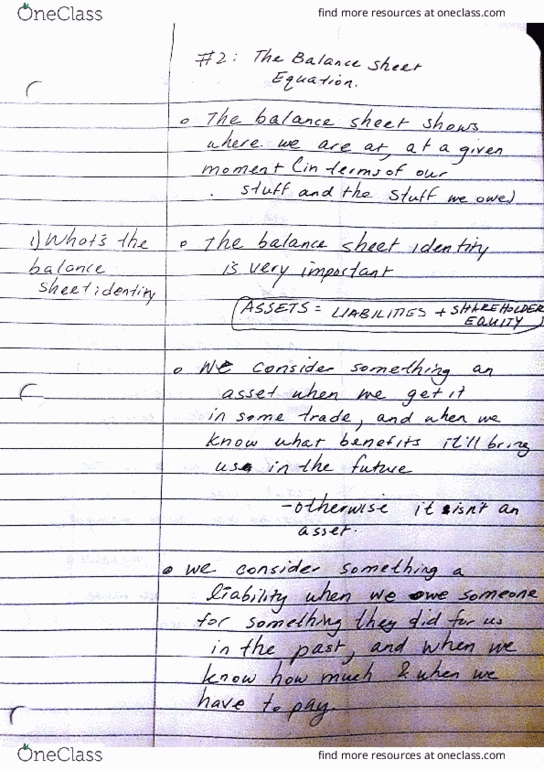 OneClass
find more resources at oneclass.com
#2: The Balance sheet
Equation.
The balance sheet shows
where we are at, at a given
moment (in terms of our
stuff and the stuff we owe)
1) What's the
balance
sheet identity
The balance sheet identity
is very important
ASSETS = LIABILITIES + SHAREHOLDER
EQUITY
We consider something an
asset when we get it
in some trade, and when we
know what benefits it'll bring
us in the future
- otherwise it isn't an
asset.
we consider something a
liability when we owe someone
for something they did for us
in the past, and when we
know how much & when we
have to pay.
OneClass
find more resources at oneclass.com